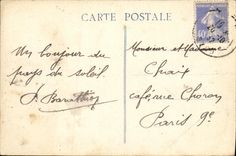 CARTE POSTALE
Un bonjour du
pays du soleil
Monsieur et Madame
Chaix
café rue Choron
Paris 9e